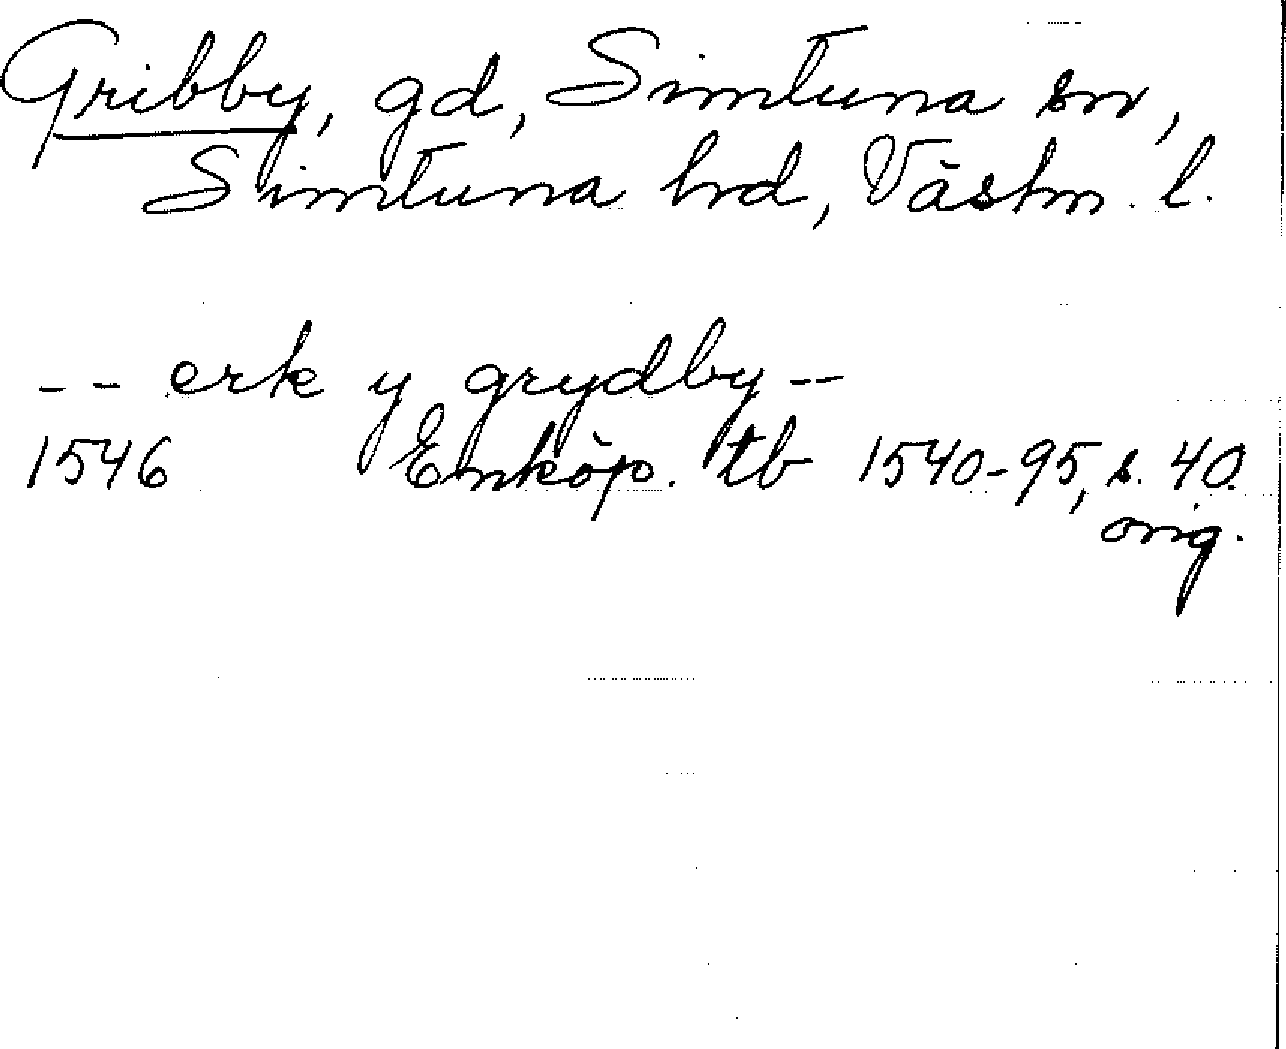 Gribby, gd, Simtuna sn,
Simtuna hrd, Västm. l.
-- erk y grydby --
1546 Enköp. tb 1540-95, s. 40.
orig.